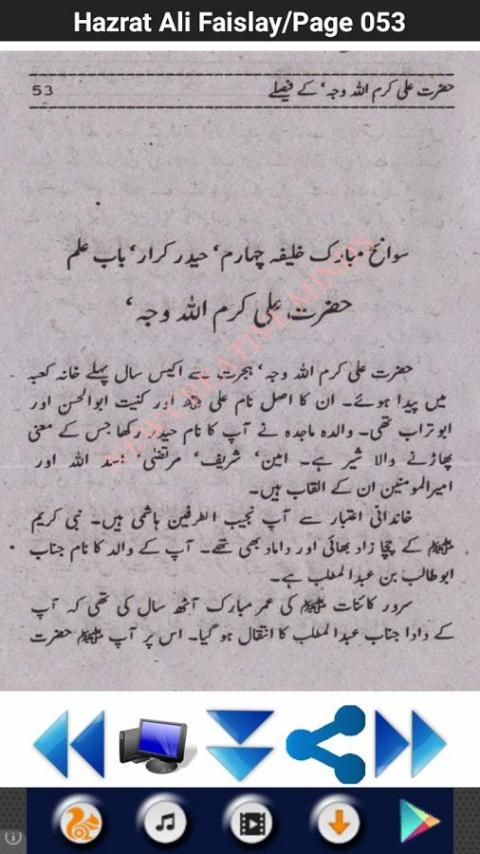 Hazrat Ali Faislay/Page 053
حضرت علی کرم اللہ وجہ، کے فیصلے
53
سوانح مبارک خلیفہ چہارم، حیدر کرار، باب علم
حضرت علی کرم اللہ وجہ،
حضرت علی کرم اللہ وجہ، ہجرت سے اکیس سال پہلے خانہ کعبہ
میں پیدا ہوئے۔ ان کا اصل نام علی اور کنیت ابوالحسن اور
ابو تراب تھی۔ والدہ ماجدہ نے آپ کا نام حیدر رکھا جس کے معنی
پھاڑنے والا شیر ہے۔ امین، شریف، مرتضی، اسد اللہ اور
امیرالمومنین ان کے القاب ہیں۔
خاندانی اعتبار سے آپ نجیب الطرفین ہاشمی ہیں۔ نبی کریم
ﷺ کے چچا زاد بھائی اور داماد بھی تھے۔ آپ کے والد کا نام جناب
ابو طالب بن عبدالمطلب ہے۔
سرور کائنات ﷺ کی عمر مبارک آٹھ سال کی تھی کہ آپ
کے دادا جناب عبدالمطلب کا انتقال ہو گیا۔ اس پر آپ ﷺ حضرت